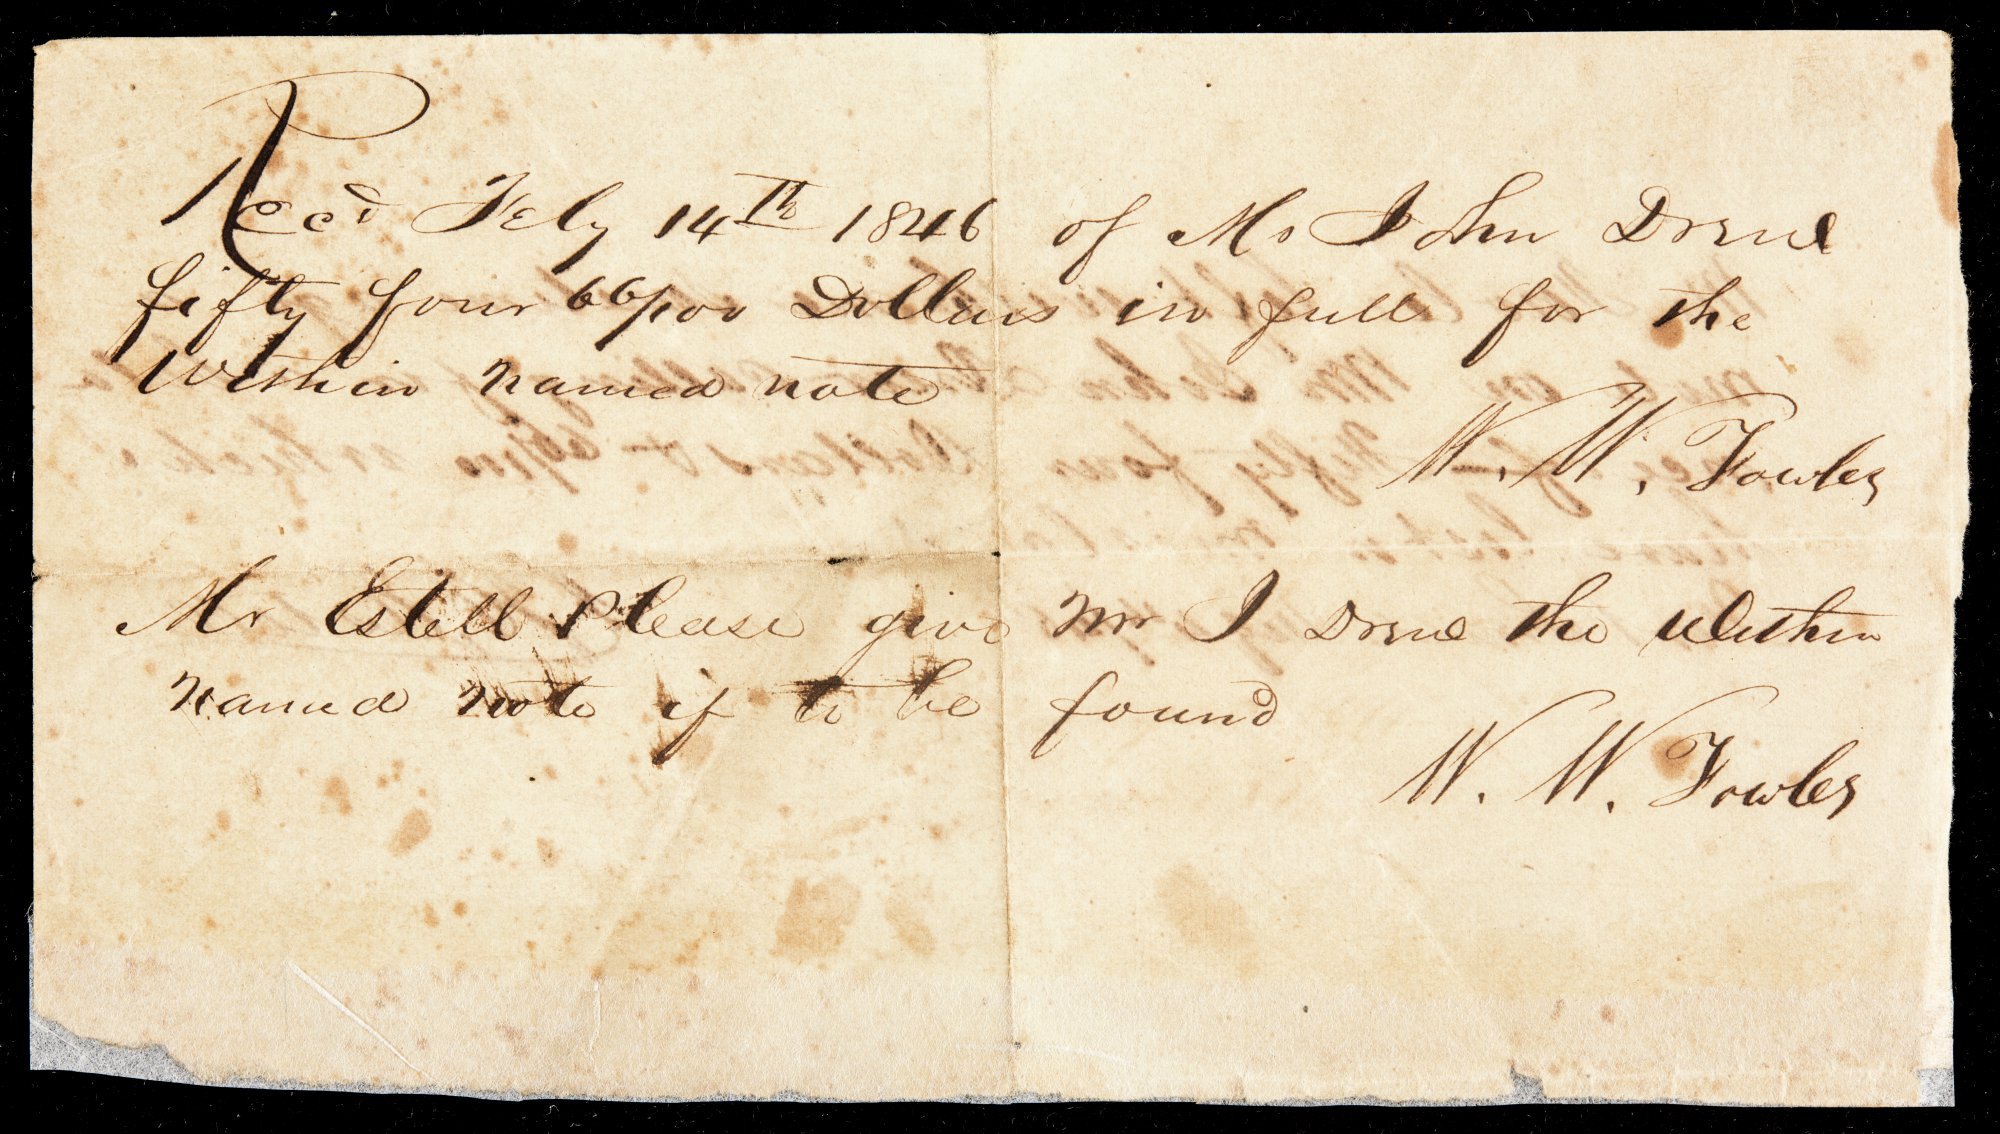 Recd Feby 14th 1846 of Mr John Drew
fifty four 66/100 Dollars in full for the
Within named note
W. W. Fowler
Mr Estell Please give Mr J Drew the Within
named note if to be found
W. W. Fowler